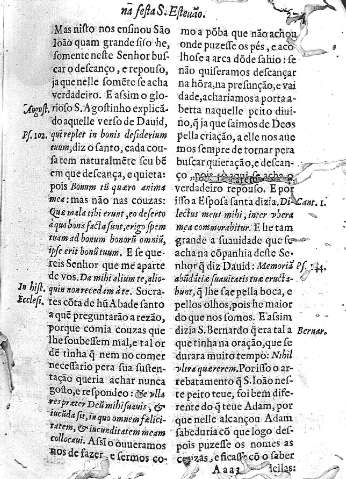 na festa S. Esteuão.
Mas nisto nos ensinou São
Ioão quam grande siso he,
somente neste Senhor bus-
car o descanço, e repouso,
ja que nelle somẽte se acha
verdadeiro. E assim o glo-
August.
rioso S. Agostinho explicã-
do aquelle verso de Dauid,
Ps. 102.
qui replet in bonis desiderium
tuum, diz o santo, cada cou-
sa tem naturalmẽte seu bẽ
em que descança, e quieta:
pois Bonum tũ quæro anima
mea: mas não nas couzas:
Quæ mala tibi erunt, eo deserto
à quo bona facta sunt, erigo spem
tuam ad bonum bonorũ omniũ,
ipse erit bonũ tuum. E se que-
reis Senhor que me aparte
de vos. Da mihi alium te, alio-
quin non recedam à te. Socra-
In hist.
Ecclesi.
tes cõta de hũ Abade santo
a quẽ preguntarão a rezão,
porque comia couzas que
lhe soubessem mal, e tal or
dẽ tinha q̃ nem no comer
necessario pera sua susten-
tação queria achar nunca
gosto, e respondeo:
respræter Deũ mihi suauis, &
iucũda sit, in quo omnem fœlici-
tatem, & iucunditatem meam
collocaui. Assi o ouueramos
nos de fazer, e sermos co-
mo a põba que não achou
onde puzesse os pés, e aco
lhose a arca dõde sahio: se
não quiseramos descançar
na hõra, na presunção, e vai
dade, achariamos a porta a-
berta naquelle peito diui-
no, q̃ ja que saimos de Deos
pella criação, a elle nos auc
mos sempre de tornar pera
buscar quieração, e descan-
ço, pois so aqui se acha o
verdadeiro repouso. E por
isso a Esposa santa dizia. Di-
Cant. 1.
lectus meus mihi, inter vbera
mea commorabitur. E he tam
grande a suauidade que se
acha na cõpanhia deste Se-
nhor q̃ diz Dauid: Memoriã
Ps. 144.
abũdãtiæ suauitatis tuæ eructa-
bunt, q̃ lhe sae pella boca, e
pellos olhos, pois he maior
do que nos somos. E assim
dizia S. Bernardo q̃ era tal a
Bernar.
que tinha na oração, que se
durara muito tempo: Nihil
vltra quærerem. Por isso o ar-
rebatamento q̃ S. Ioão nes-
te peito teue, foi bem difie-
rente do q̃ teue Adam, por
que nelle alcançou Adam
sabeduria cõ que logo des-
pois puzesse os nomes as
couzas, e ficasse cõ o saber
Aaa3